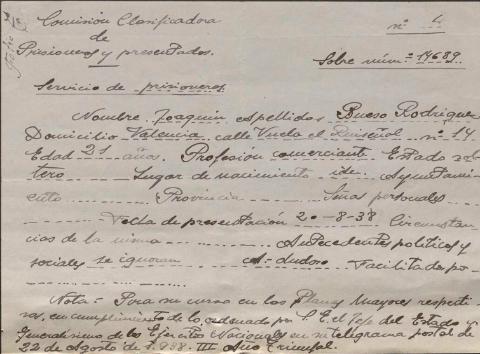 Comisión Clasificadora
de
Prisioneros y presentados.
nº 4
Sobre núm= 14689
Servicio de prisioneros.
Nombre Joaquin Apellidos Bueso Rodriguez
Domicilio Valencia calle Vuela el Ruiseñol nº 14
Edad 21 años. Profesion comerciante Estado sol
tero Lugar de nacimiento ide. Ayuntami
ento Provincia Señas personales
Fecha de presentación 20-8-38 Circunstan
cias de la misma Antecedentes politicos y
sociales se ignoran A-dudoso Facilitados po
Nota = Para su curso en los Planas Mayores respecti
vas, en cumplimiento de lo ordenado por S.E. el Jefe del Estado y
Generalisimo de los Ejércitos Nacionales en su telegrama postal de
22 de Agosto de 1.938. III Año Triunfal.